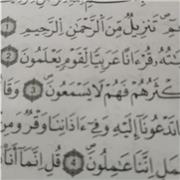 تَنزِيلٌ مِّنَ ٱلرَّحْمَٰنِ ٱلرَّحِيمِ ١
تُهُۥ قُرْءَانًا عَرَبِيًّا لِّقَوْمٍ يَعْلَمُونَ ٢
كْثَرُهُمْ فَهُمْ لَا يَسْمَعُونَ ٣ وَقَا
تَدْعُونَآ إِلَيْهِ وَفِىٓ ءَاذَانِنَا وَقْرٌ وَمِنۢ
مَلِ اِنَّنَا عَٰمِلُونَ ٤ قُلِ اِنَّمَآ أَنَا